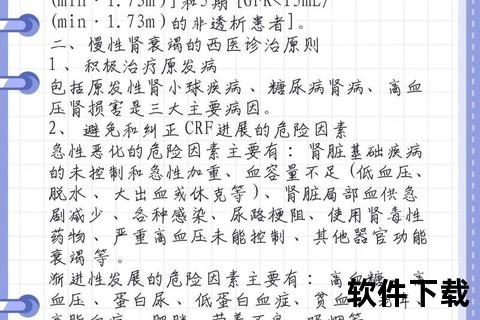 (min·1.73m)]和5期[GFR<15mL/
(min·1.73m)的非透析患者]。
二、慢性肾衰竭的西医诊治原则
1、积极治疗原发病
包括原发性肾小球疾病、糖尿病肾病、高血
压肾损害是三大主要病因。
2、避免和纠正CRF进展的危险因素
急性恶化的危险因素主要有：肾脏基础疾病
的未控制和急性加重、血容量不足(低血压、
脱水、大出血或休克等)、肾脏局部血供急
剧减少、各种感染、尿路梗阻、使用肾毒性
药物、严重高血压未能控制、其他器官功能
衰竭等。
渐进性发展的危险因素主要有：高血糖、高
血压、蛋白尿、低蛋白血症、贫血、
高脂血症、肥胖、营养不良、吸烟等
软件下载